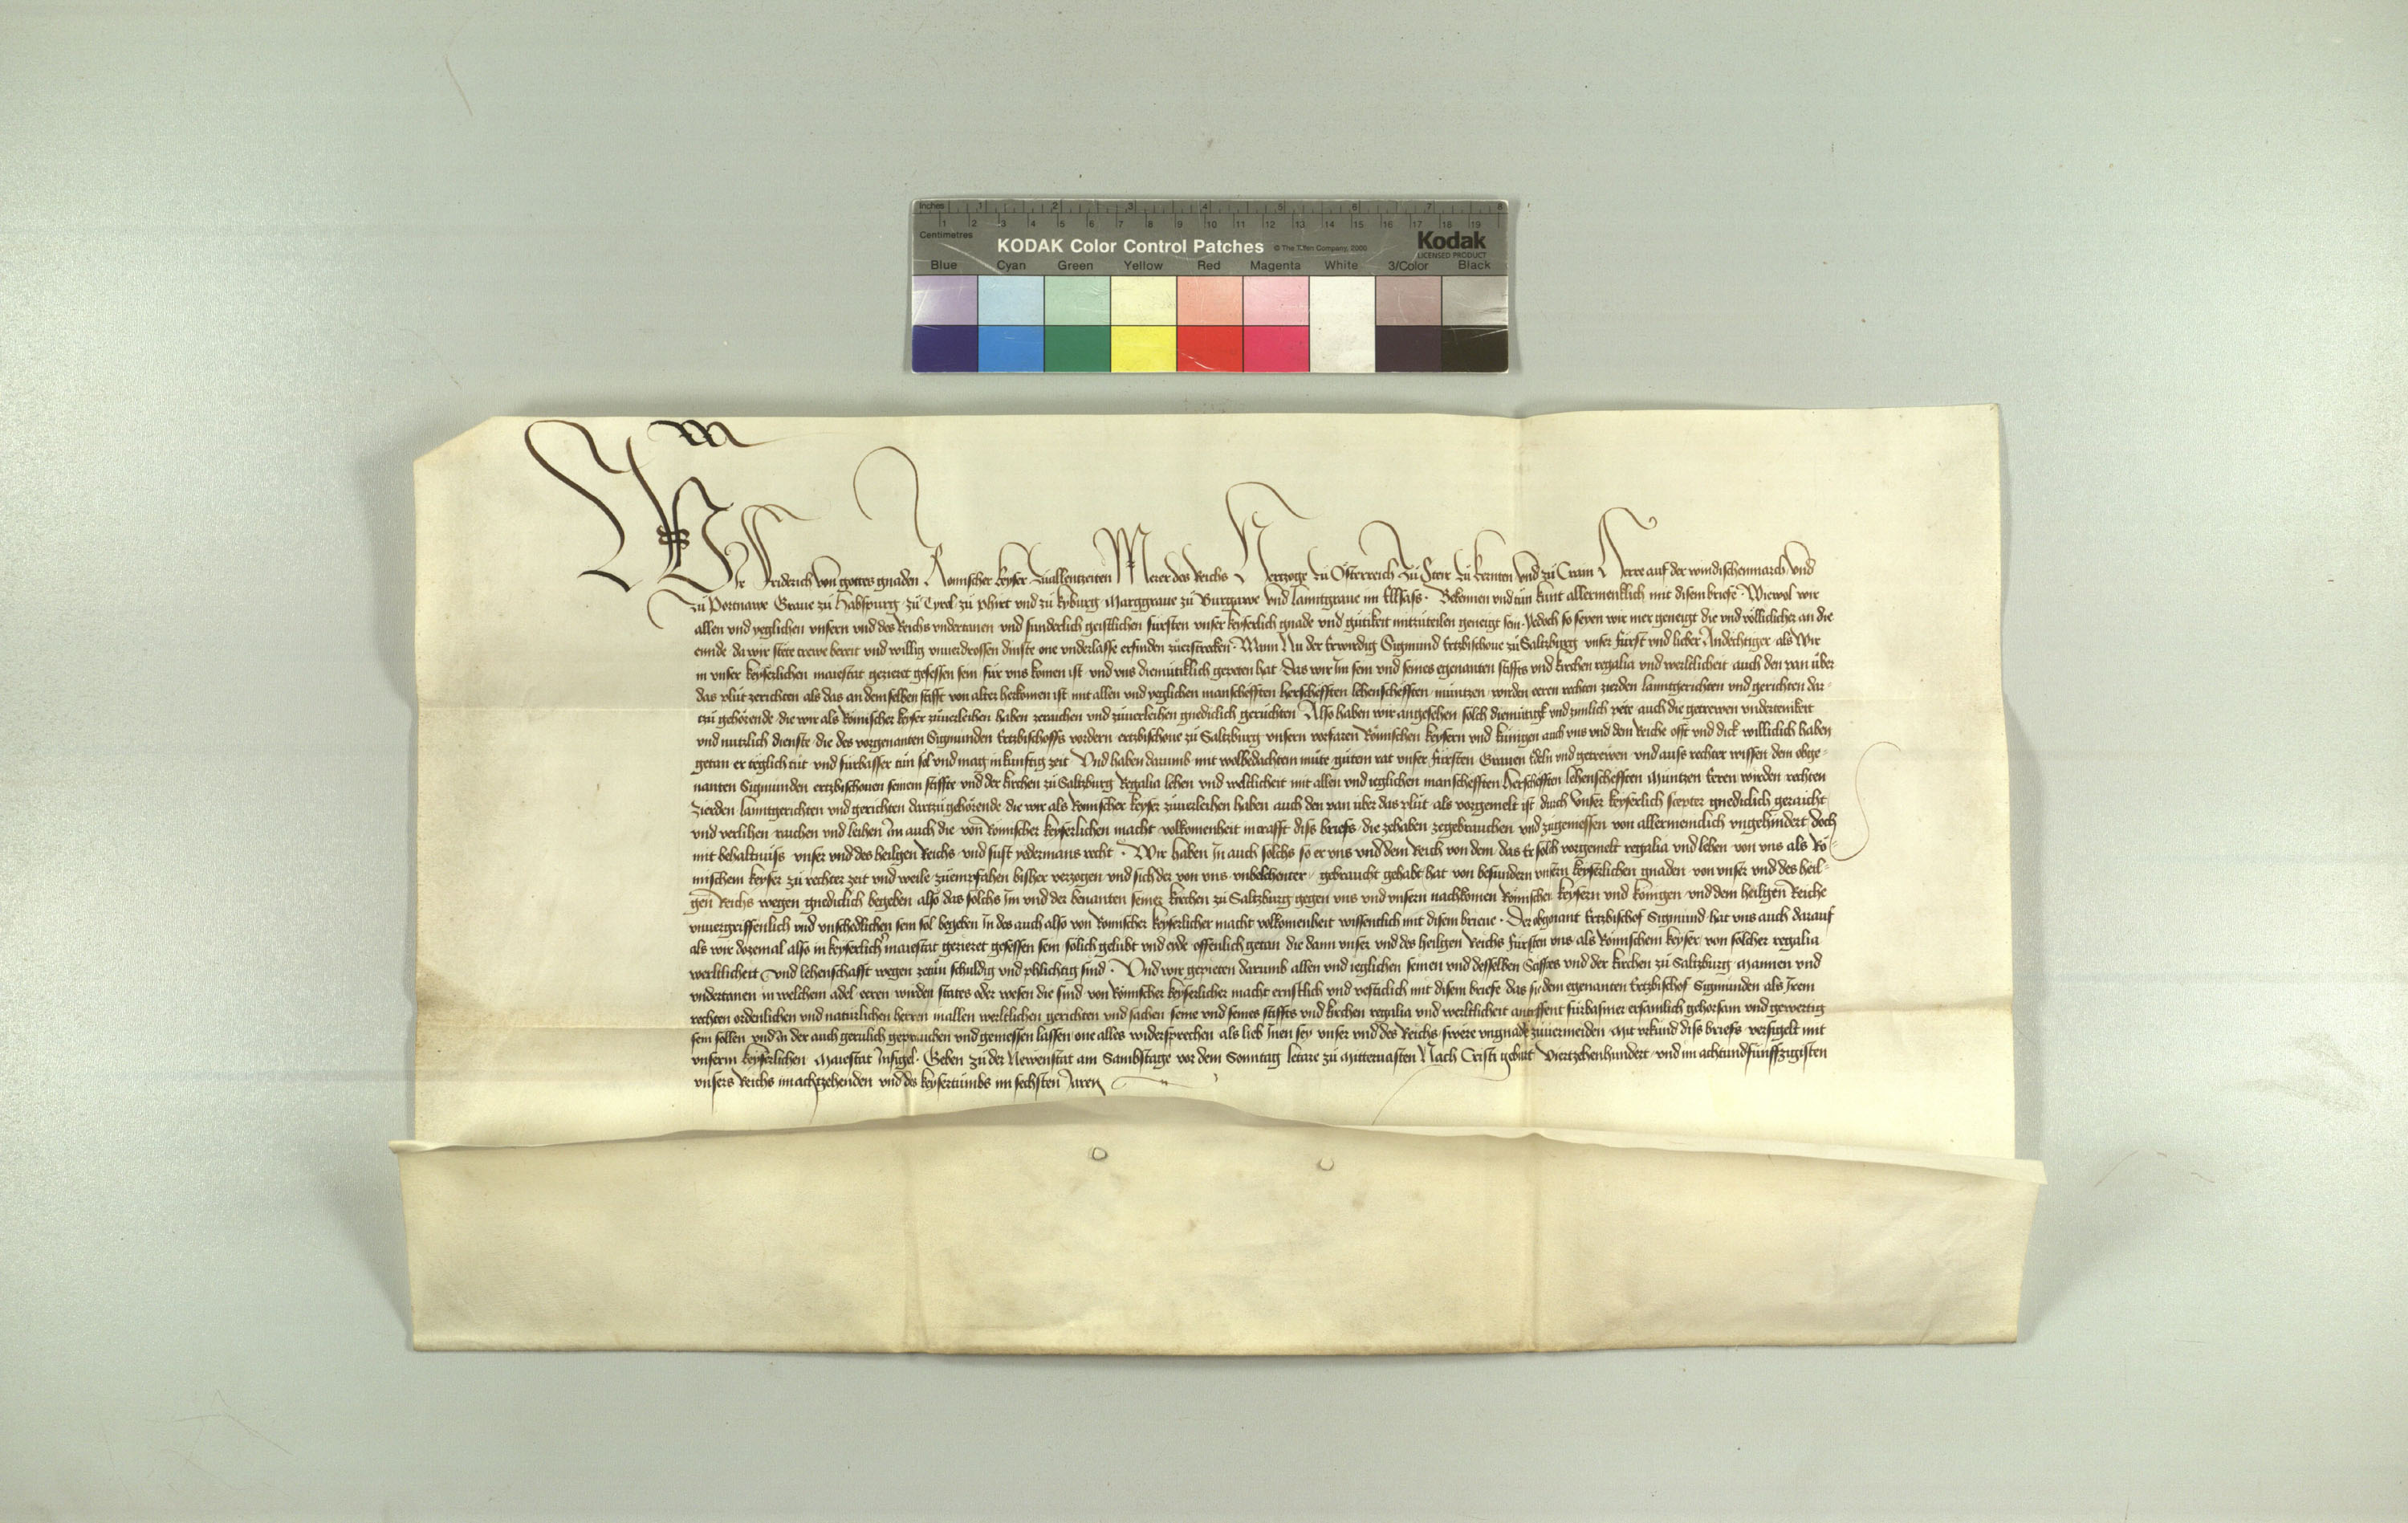 Inches 1 2 3 4 5 6 7 8
1 2 3 4 5 6 7 8 9 10 11 12 13 14 15 16 17 18 19
Centimetres
KODAK Color Control Patches © The Tiffen Company, 2000 Kodak
LICENSED PRODUCT
Blue Cyan Green Yellow Red Magenta White 3/Color Black
Wir Friderich von gottes gnaden Römischer keyser zuallenntzeiten Merer des Reichs Hertzoge zu Österreich zu Steir zu kernnten vnd zu Crain Herre auf der windischenmarch vnd
zu Portnawe Graue zu Habspurg zu Tyrol zu phirt vnd zu kyburg Marggraue zu Burgawe vnd lanntgraue im Ellsass · Bekennen vnd tün kunt allermenklich mit disem briefe · Wiewol wir
allen vnd yeglichen vnsern vnd des Reichs vndertanen vnd sunderlich geistlichen fursten vnser keyserlich gnade vnd gütikeit mitzuteilen geneigt sein · Yedoch so seyen wir mer geneigt die vnd völliclicher an die
ennde da wir stete trewe bereit vnd willig vnuerdrossen dinste one vnderlasse erfinden zuerstrecken · Wann Nu der Erwirdig Sigmund Ertzbischoue zu Saltzburg vnser Fürst vnd lieber Andechtiger als Wir
in vnser keyserlichen maiestat gezieret gesessen sein für vns komen ist vnd vns diemütiklich gepeten hat Das wir Im sein vnd seines egenanten stiffts vnd kirchen regalia vnd werltlicheit auch den pan über
das plüt zerichten als das an demselben stifft von alter herkomen ist mit allen vnd yeglichen manschefften herschefften lehenschefften müntzen wirden eeren rechten zierden lanntgerichten vnd gerichten dar-
tzü gehörende die wir als Römischer keyser zuuerleihen haben zeraichen vnd zuuerleihen gnediclich geruchten Also haben wir angesehen solch diemütige vnd zimlich pete auch die getrewen vndertenikeit
vnd nutzlich dienste die des vorgenanten Sigmunden Ertzbischoffs vordern ertzbischoue zu Saltzburg vnsern vorfaren Römischen keysern vnd künigen auch vns vnd dem Reiche offt vnd dick williclich haben
getan er teglich tüt vnd fürbasser tün sol vnd mag in künftig zeit Vnd haben darumb mit wolbedachtem müte gutem rat vnser Fürsten Grauen Edeln vnd getrewen vnd auss rechter wissen dem obge-
nanten Sigmunden ertzbischouen seinem stiffte vnd der kirchen zu Saltzburg Regalia lehen vnd weltlicheit mit allen vnd ieglichen manschefften Herschefften lehenschefften Müntzen Eeren wirden rechten
Zierden lanntgerichten vnd gerichten dartzü gehörende die wir als Römischer keyser zuuerleihen haben auch den pan über das plüt als vorgemelt ist durch vnser keyserlich scepter gnediclich geraicht
vnd verlihen raichen vnd leihen Im auch die von Römischer keyserlichen macht volkomenheit in crafft diss briefs die zehaben zegebrauchen vnd zügeniessen von allermeniclich vngehindert doch
mit behaltnüss vnser vnd des heiligen Reichs vnd sust yedermans recht · Wir haben In auch solchs so er vns vnd dem Reich von dem das Er solch vorgemelt regalia vnd lehen von vns als Rö-
mischem keyser zu rechter zeit vnd weile zuempfahen bisher verzogen vnd sich der von vns vnbelehenter gebraucht gehabt hat von besundern vnsern keyserlichen gnaden von vnser vnd des heil-
gen Reichs wegen gnediclich begeben also das solchs Im vnd der benanten seiner kirchen zu Saltzburg gegen vns vnd vnsern nachkomen Römischen keysern vnd künigen vnd dem heiligen Reiche
vnuergriffenlich vnd vnschedlichen sein sol begeben In des auch also von Römischer keyserlicher macht volkomenheit wissentlich mit disem brieue · Der obgenant Ertzbischof Sigmund hat vns auch darauf
als wir dozemal also in keyserlicher maiestat gezieret gesessen sein solich gelubt vnd eide offenlich getan die dann vnser vnd des heiligen Reichs fürsten vns als Römischem keyser von solcher regalia
werltlicheit vnd lehenschafft wegen zetün schuldig vnd phlichtig sind · Vnd wir gepieten darumb allen vnd ieglichen seinen vnd desselben Stifftes vnd der kirchen zu Saltzburg mannen vnd
vndertanen in welchem adel eeren wirden states oder wesen die sind von Römischer keyserlicher macht ernstlich vnd vesticlich mit disem briefe das sie dem egenanten Ertzbischof Sigmunden als Irem
rechten ordenlichen vnd natürlichen herren in allen werltlichen gerichten vnd sachen seine vnd seines stiffts vnd kirchen regalia vnd werltlicheit antreffent fürbasmer ersamlich gehorsam vnd gewertig
sein sollen vnd In der auch gerulich geprauchen vnd geniessen lassen one alles widersprechen als lieb Inen sey vnser vnd des Reichs swere vngnade zuuermeiden Mit vrkund diss briefs versigelt mit
vnserm keyserlichen Maiestat Insigel · Geben zu der Newenstat am Sambstage vor dem Sonntag letare zu Mitteruasten Nach Cristi geburt Viertzehenhundert vnd im achtundfünffzigisten
vnsers Reichs im achtzehenden vnd des keysertumbs im sechsten Jaren